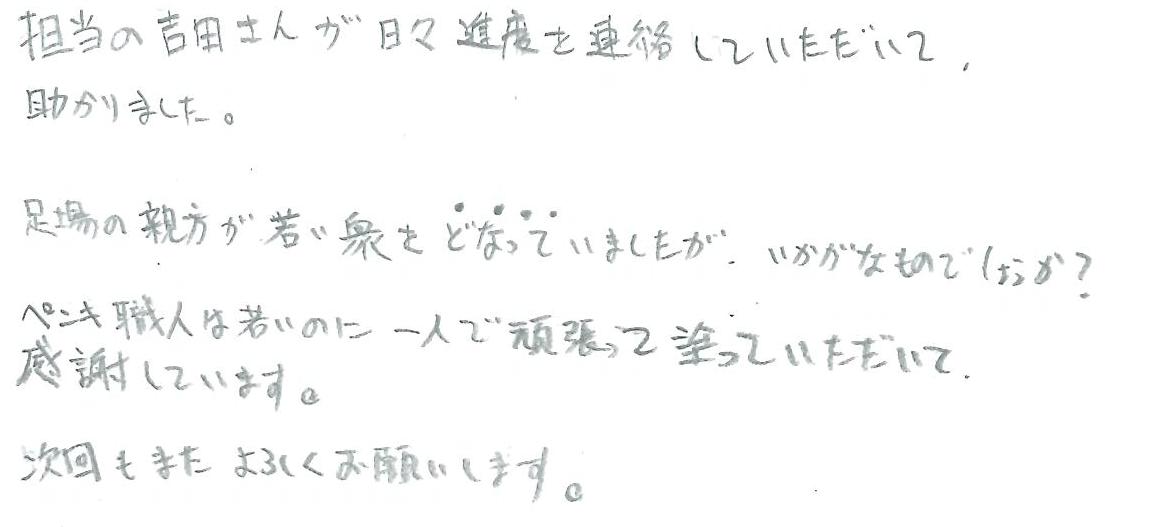 担当の吉田さんが日々進度を連絡していただいて、
助かりました。
足場の親方が若い衆をどなっていましたが、いかがなものでしょうか?
ペンキ職人は若いのに一人で頑張って塗っていただいて、
感謝しています。
次回もまたよろしくお願いします。